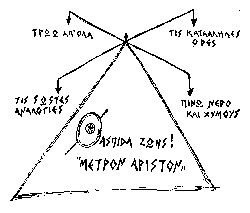 ΤΡΩΩ ΑΠ'ΟΛΑ
ΤΙΣ ΚΑΤΑΛΛΗΛΕΣ
ΩΡΕΣ
ΤΙΣ ΣΩΣΤΕΣ
ΑΝΑΛΟΓΙΕΣ
ΠΙΝΩ ΝΕΡΟ
ΚΑΙ ΧΥΜΟΥΣ
ΑΣΠΙΔΑ ΖΩΗΣ!
"ΜΕΤΡΟΝ ΑΡΙΣΤΟΝ"